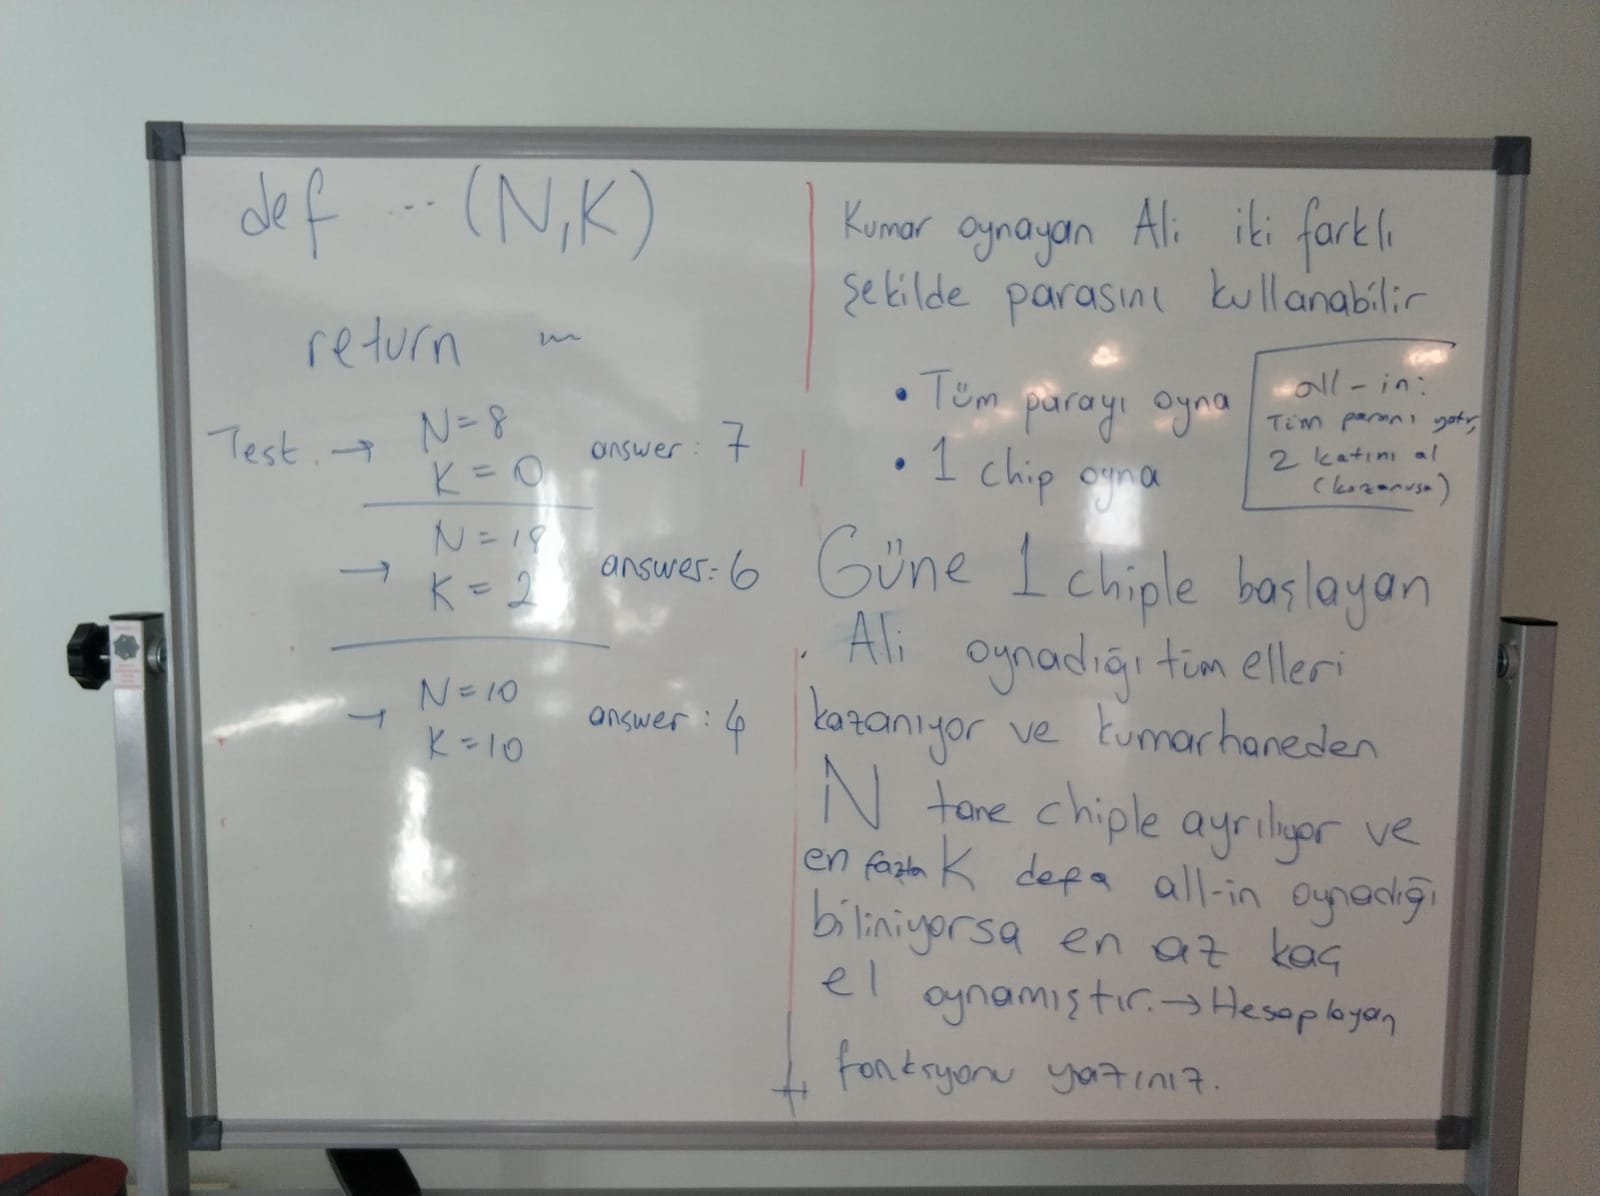 def ... (N,K)
return ~
Test. → N=8
K=0
answer: 7
→ N=18
K=2
answer: 6
→ N=10
K=10
answer: 4
Kumar oynayan Ali iki farklı
şekilde parasını kullanabilir
• Tüm parayı oyna
• 1 chip oyna
all-in:
Tüm paranı yatır,
2 katını al
(kazanırsa)
Güne 1 chiple başlayan
Ali oynadığı tüm elleri
kazanıyor ve kumarhaneden
N tane chiple ayrılıyor ve
en fazla K defa all-in oynadığı
biliniyorsa en az kaç
el oynamıştır. → Hesaplayan
fonksyonu yazınız.